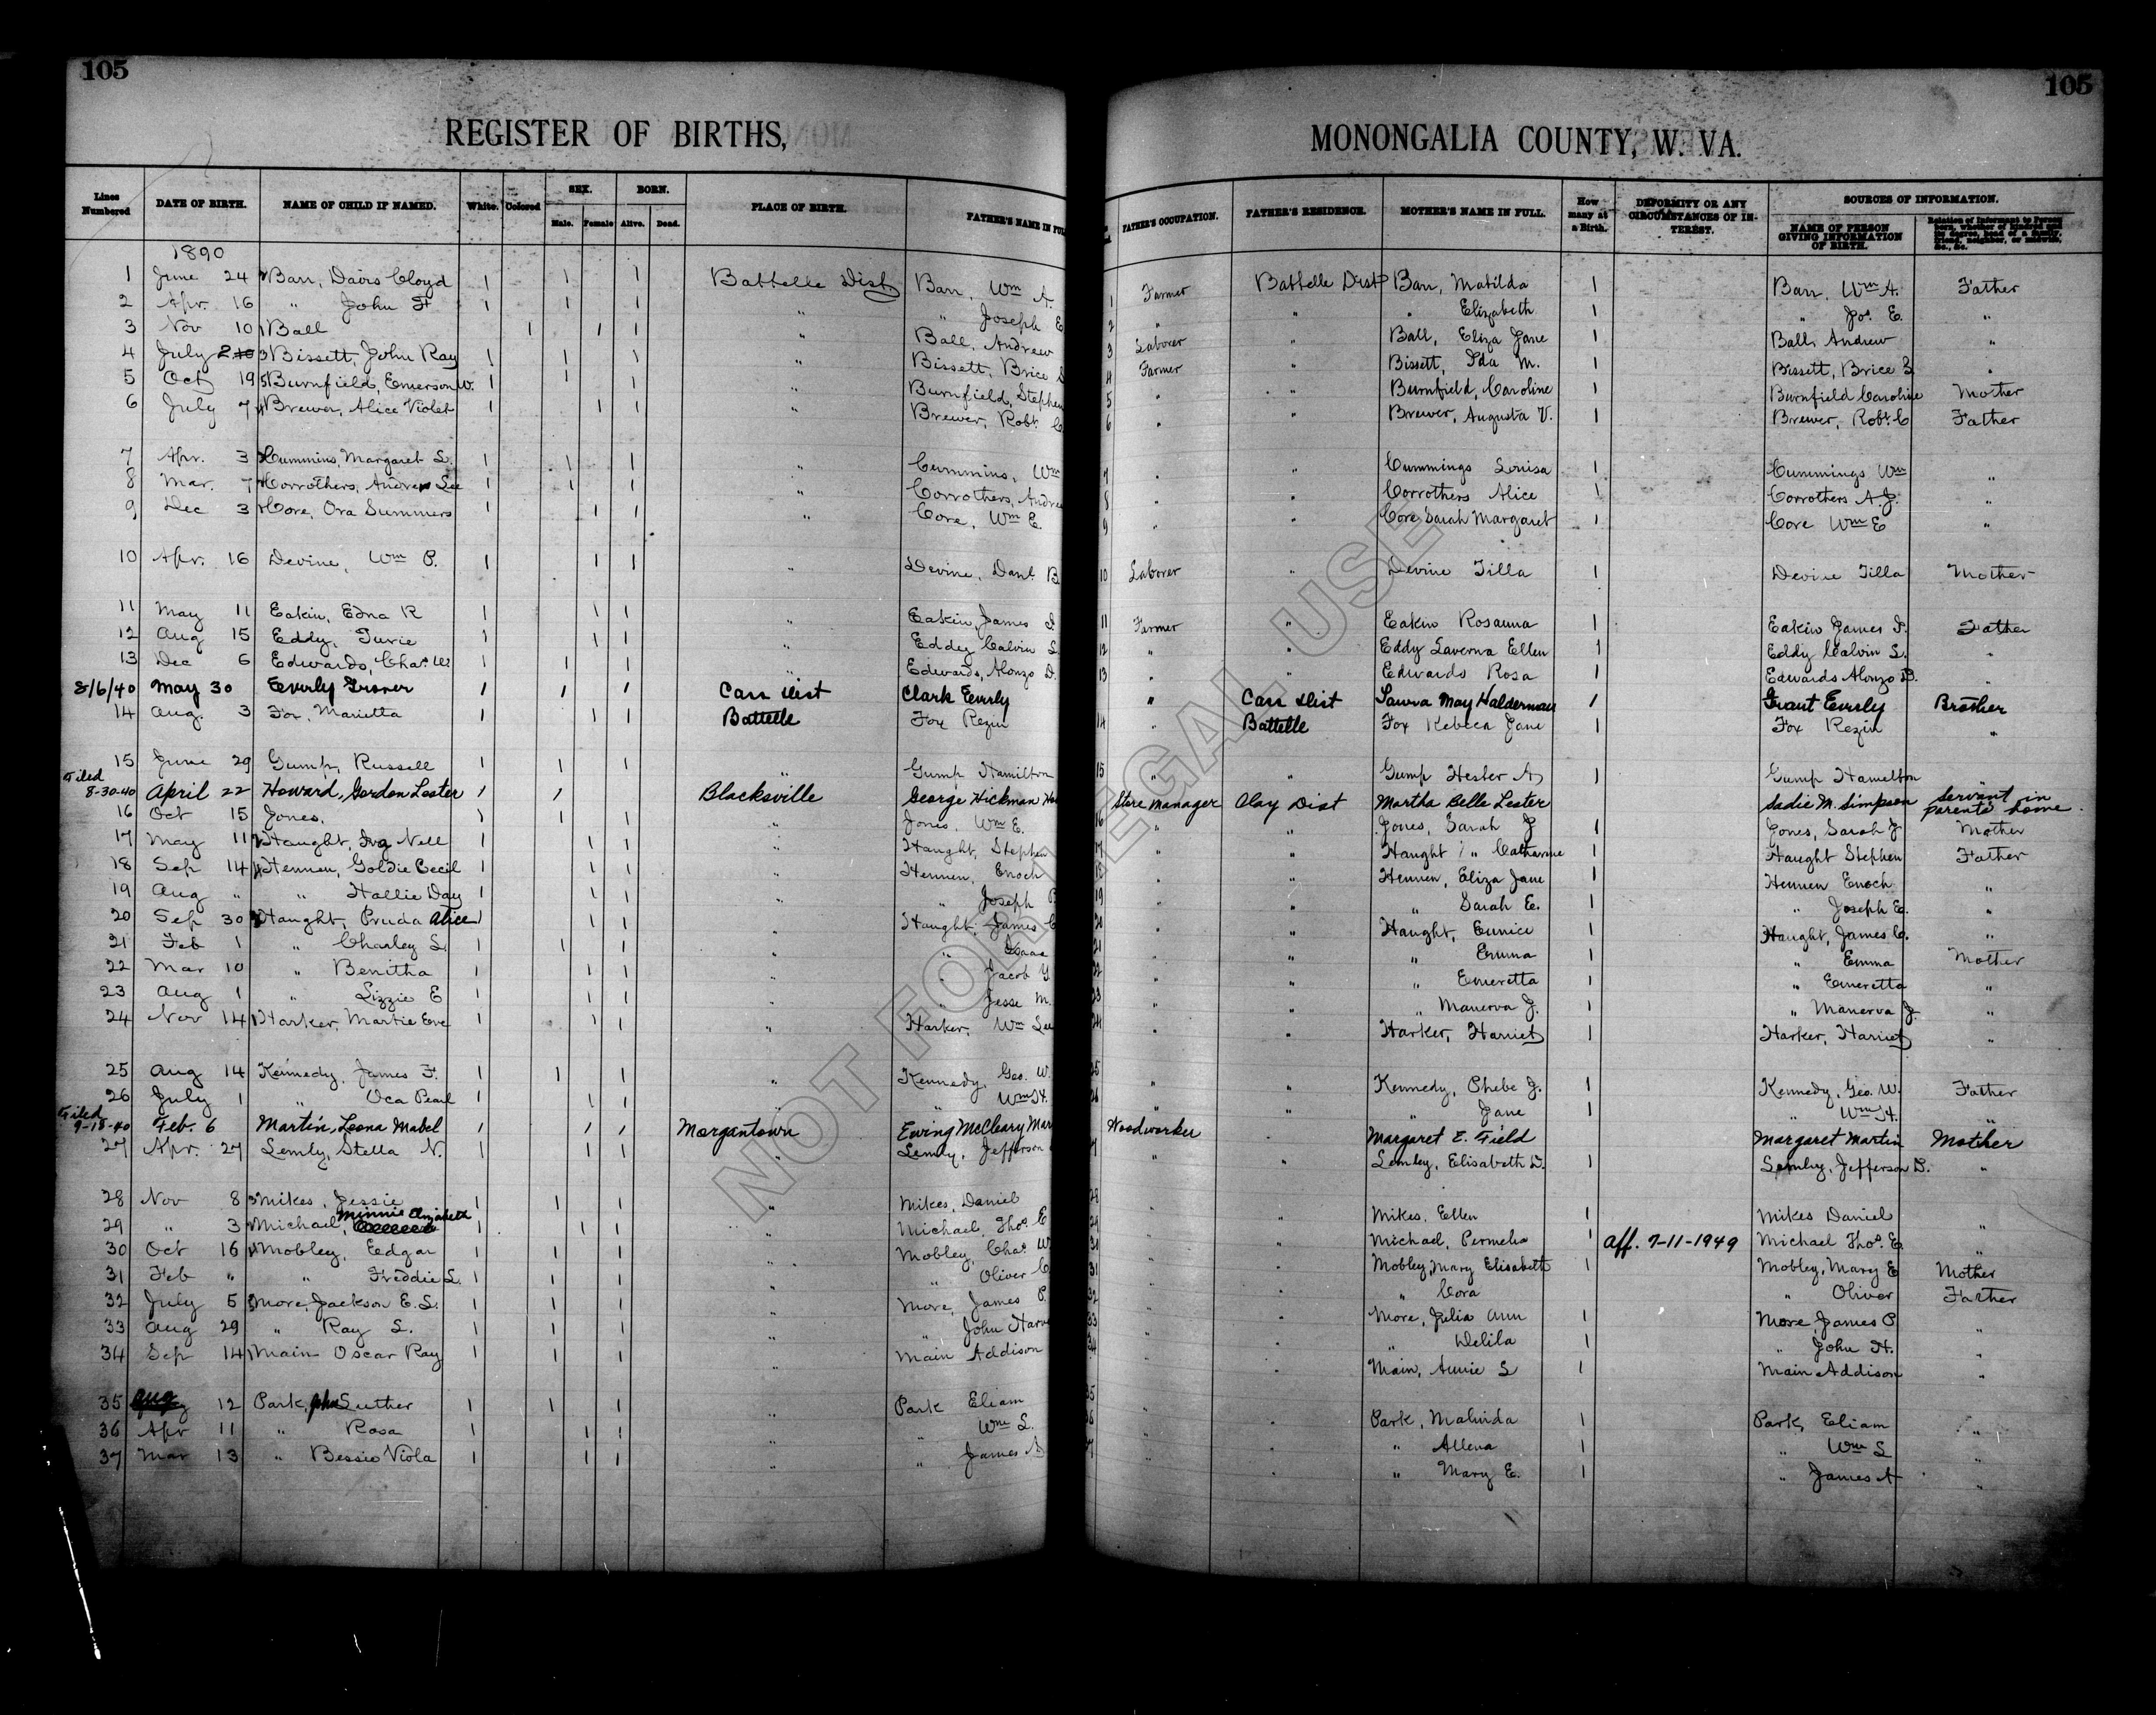 105 105
REGISTER OF BIRTHS, MONONGALIA COUNTY, W. VA.
Lines Numbered DATE OF BIRTH. NAME OF CHILD IF NAMED. White. Colored SEX. Male. Female BORN. Alive. Dead. PLACE OF BIRTH. FATHER'S NAME IN FUL FATHER'S OCCUPATION. FATHER'S RESIDENCE. MOTHER'S NAME IN FULL. How many at a Birth. DEFORMITY OR ANY CIRCUMSTANCES OF INTEREST. SOURCES OF INFORMATION. NAME OF PERSON GIVING INFORMATION OF BIRTH. Relation of Informant to Person born, whether of kindred and the degree, head of a family, friend, neighbor, or midwife, &c., &c.
1890
1 June 24 Barr, Davis Cloyd 1 1 1 Battelle Dist Barr, Wm A. 1 Farmer Battelle Dist Barr, Matilda 1 Barr, Wm A. Father
2 Apr. 16 " John F 1 1 1 " " Joseph E 2 " " " Elizabeth 1 " Jos. E. "
3 Nov 10 Ball 1 1 1 " Ball, Andrew 3 Laborer " Ball, Eliza Jane 1 Ball Andrew "
4 July Bissett, John Ray 1 1 1 " Bissett, Brice 4 Farmer " Bissett, Ida M. 1 Bissett, Brice "
5 Oct 19 Burnfield, Emerson W. 1 1 1 " Burnfield, Stephen 5 " " Burnfield, Caroline 1 Burnfield Caroline Mother
6 July 7 Brewer, Alice Violet 1 1 1 " Brewer, Robt. C 6 " " Brewer, Augusta V. 1 Brewer, Robt. C Father
7 Apr. 3 Cummins, Margaret L. 1 1 1 " Cummins, Wm 7 " " Cummings Louisa 1 Cummings Wm "
8 Mar. 7 Corrothers, Andrew Lee 1 1 1 " Corrothers, Andrew 8 " " Corrothers Alice 1 Corrothers A. J. "
9 Dec 3 Core, Ora Summers 1 1 1 " Core, Wm E. 9 " " Core Sarah Margaret 1 Core Wm E "
10 Apr. 16 Devine, Wm P. 1 1 1 " Devine, Danl. B 10 Laborer " Devine Tilla 1 Devine Tilla Mother
11 May 11 Eakin, Edna R 1 1 1 " Eakin, James 11 Farmer " Eakin Rosanna 1 Eakin James Father
12 Aug 15 Eddy, 1 1 1 " Eddy Calvin L 12 " " Eddy Laverna Ellen 1 Eddy Calvin L. "
13 Dec 6 Edwards, Chas. W 1 1 1 " Edwards, Alonzo D. 13 " " Edwards Rosa 1 Edwards Alonzo D. "
8/6/40 May 30 Everly Grover 1 1 1 Cass Dist Clark Everly " Cass Dist Laura May Halderman 1 Grant Everly Brother
14 Aug. 3 Fox, Marietta 1 1 1 Battelle Fox Rezin 14 " Battelle Fox Rebeca Jane Fox Rezin "
15 June 29 Gump, Russell 1 1 1 " Gump Hamilton 15 " " Gump Hester A 1 Gump Hamelton "
Filed 8-30-40 April 22 Howard, Gordon Lester 1 1 Blacksville George Hickman Ho Store manager Clay Dist Martha Belle Lester Sadie M. Simpson Servant in parents home.
16 Oct 15 Jones. 1 1 1 " Jones, Wm E. 16 " " Jones, Sarah J 1 Jones, Sarah J Mother
17 May 11 Haught, Iva Nell 1 1 1 " Haught, Stephen 17 " " Haught " Catherine 1 Haught Stephen Father
18 Sep 14 Hennen, Goldie Cecil 1 1 1 " Hennen, Enoch 18 " " Hennen, Eliza Jane 1 Hennen Enoch "
19 Aug " " Hallie Day 1 1 1 " " Joseph 19 " " " Sarah E. 1 " Joseph E. "
20 Sep 30 Haught, Pruda Alice 1 1 1 " Haught, James C 20 " " Haught, Eunice 1 Haught, James C. "
21 Feb 1 " Charley L. 1 1 1 " " Isaac 21 " " " Emma 1 " Emma Mother
22 Mar 10 " Benitha 1 1 1 " " Jacob Y 22 " " " Emeretta 1 " Emeretta "
23 Aug 1 " Lizzie E 1 1 1 " " Jesse M. 23 " " " Manerva J. 1 " Manerva J. "
24 Nov 14 Harker, Martie Eve 1 1 1 " Harker, Wm Lee 24 " " Harker, Harriet 1 Harker, Harriet "
25 Aug 14 Kennedy, James F. 1 1 1 " Kennedy, Geo. W. 25 " " Kennedy, Phebe J. 1 Kennedy, Geo. W. Father
26 July 1 " Oca Pearl 1 1 1 " " Wm H. 26 " " " Jane 1 " Wm H. "
Filed 9-18-40 Feb. 6 Martin, Leona Mabel 1 1 1 Morgantown Ewing McCleary Mar Woodworker " Margaret E. Field Margaret Martin Mother
27 Apr. 27 Lemly, Stella N. 1 1 1 " Lemly, Jefferson " " Lemley, Elisabeth D. 1 Lemley, Jefferson D. "
28 Nov 8 Mikes, Jessie 1 1 1 " Mikes, Daniel 28 " Mikes, Ellen 1 Mikes Daniel "
29 " 3 Michael, Minnie Elizabeth 1 1 1 " Michael, Thos. E 29 " " Michael, Permelia 1 Aff. 7-11-1949 Michael Thos. E. "
30 Oct 16 Mobley, Edgar 1 1 1 " Mobley, Chas. W " " Mobley, Mary Elisabeth 1 Mobley, Mary E Mother
31 Feb " " Freddie L. 1 1 1 " " Oliver C 31 " " " Cora " Oliver Father
32 July 5 More, Jackson E. L. 1 1 1 " More, James P. 32 " " More, Julia Ann 1 More James P "
33 Aug 29 " Ray L. 1 1 1 " " John Harv 33 " " " Delila 1 " John H. "
34 Sep 14 Main Oscar Ray 1 1 1 " Main Addison 34 " " Main, Annie L 1 Main Addison "
35 Aug 12 Park, John Luther 1 1 1 " Park Eliam 35 " " Park, Malinda 1 Park, Eliam "
36 Apr 11 " Rosa 1 1 1 " " Wm L. 36 " " " Allena 1 " Wm L "
37 Mar 13 " Bessie Viola 1 1 1 " " James A " " " Mary E. 1 " James A "
NOT FOR LEGAL USE